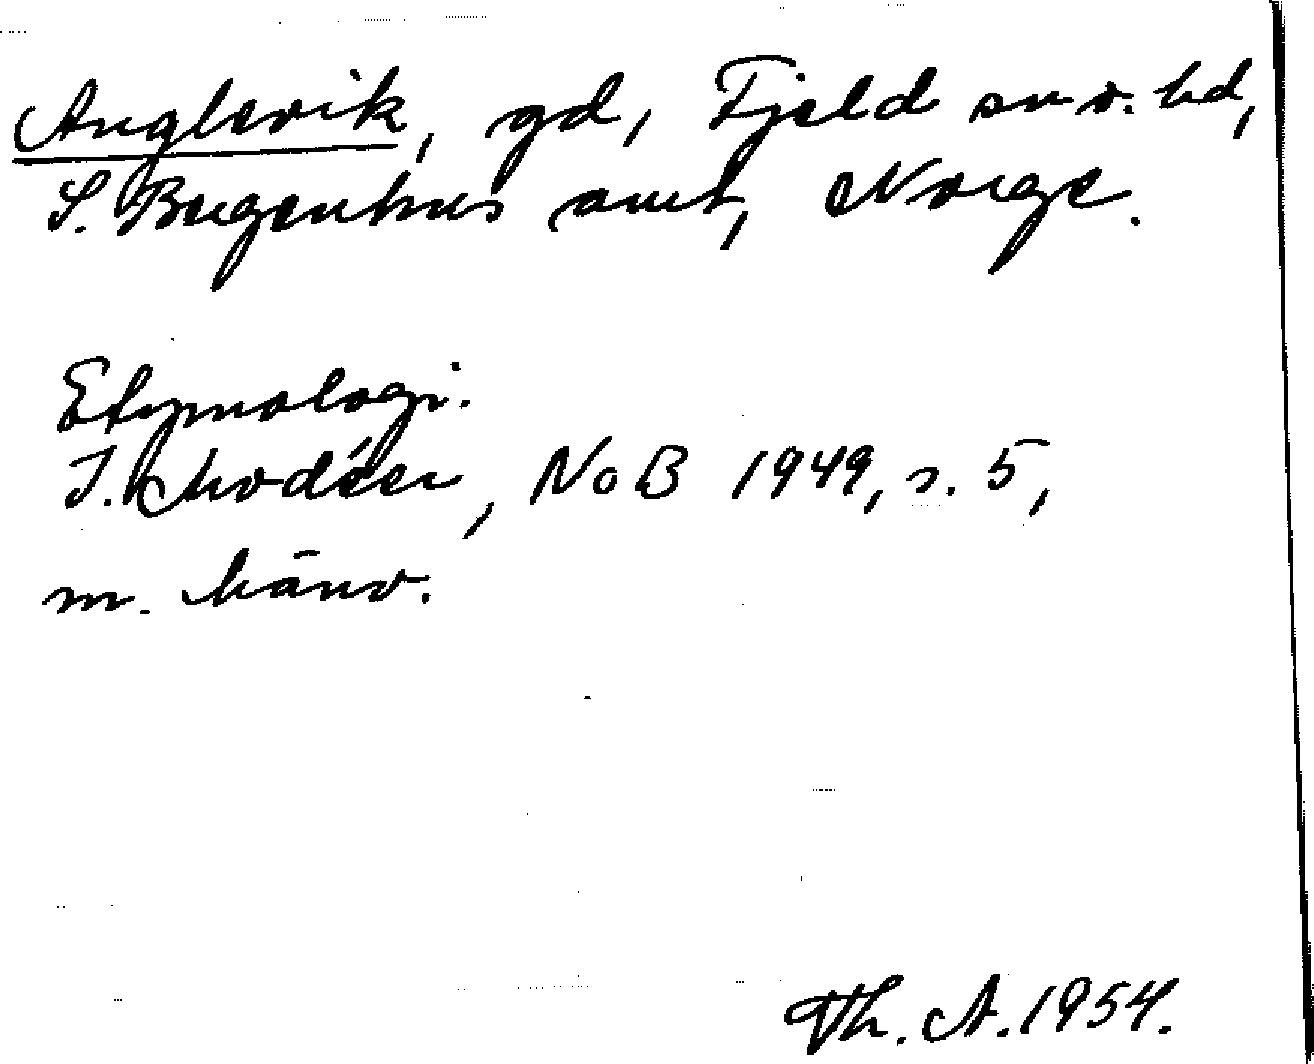 Anglevik, gd, Fjeld sn o. hd,
S. Bergenhus amt, Norge.
Etymologi.
I. Modéer, NoB 1949, s. 5,
m. hänv.
Th. A. 1954.